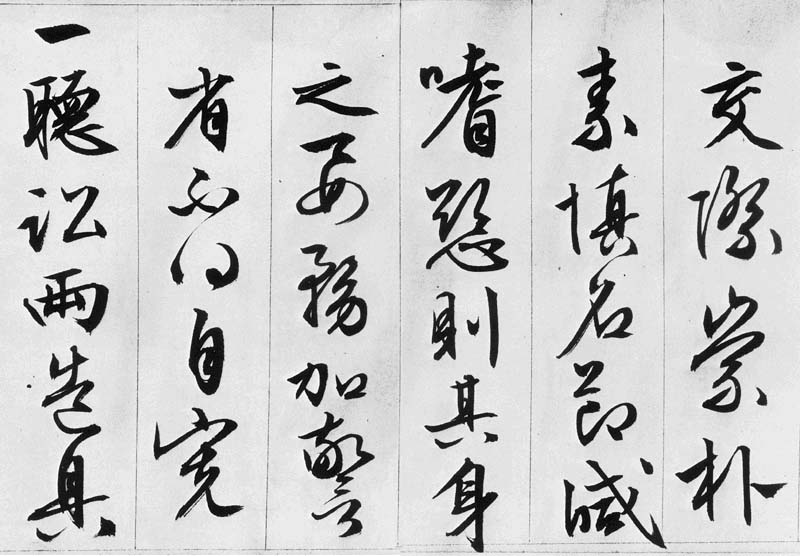 交際崇朴
素慎名節減
嗜慾則其身
之要務加警
省不可自寬
一聽訟兩造具